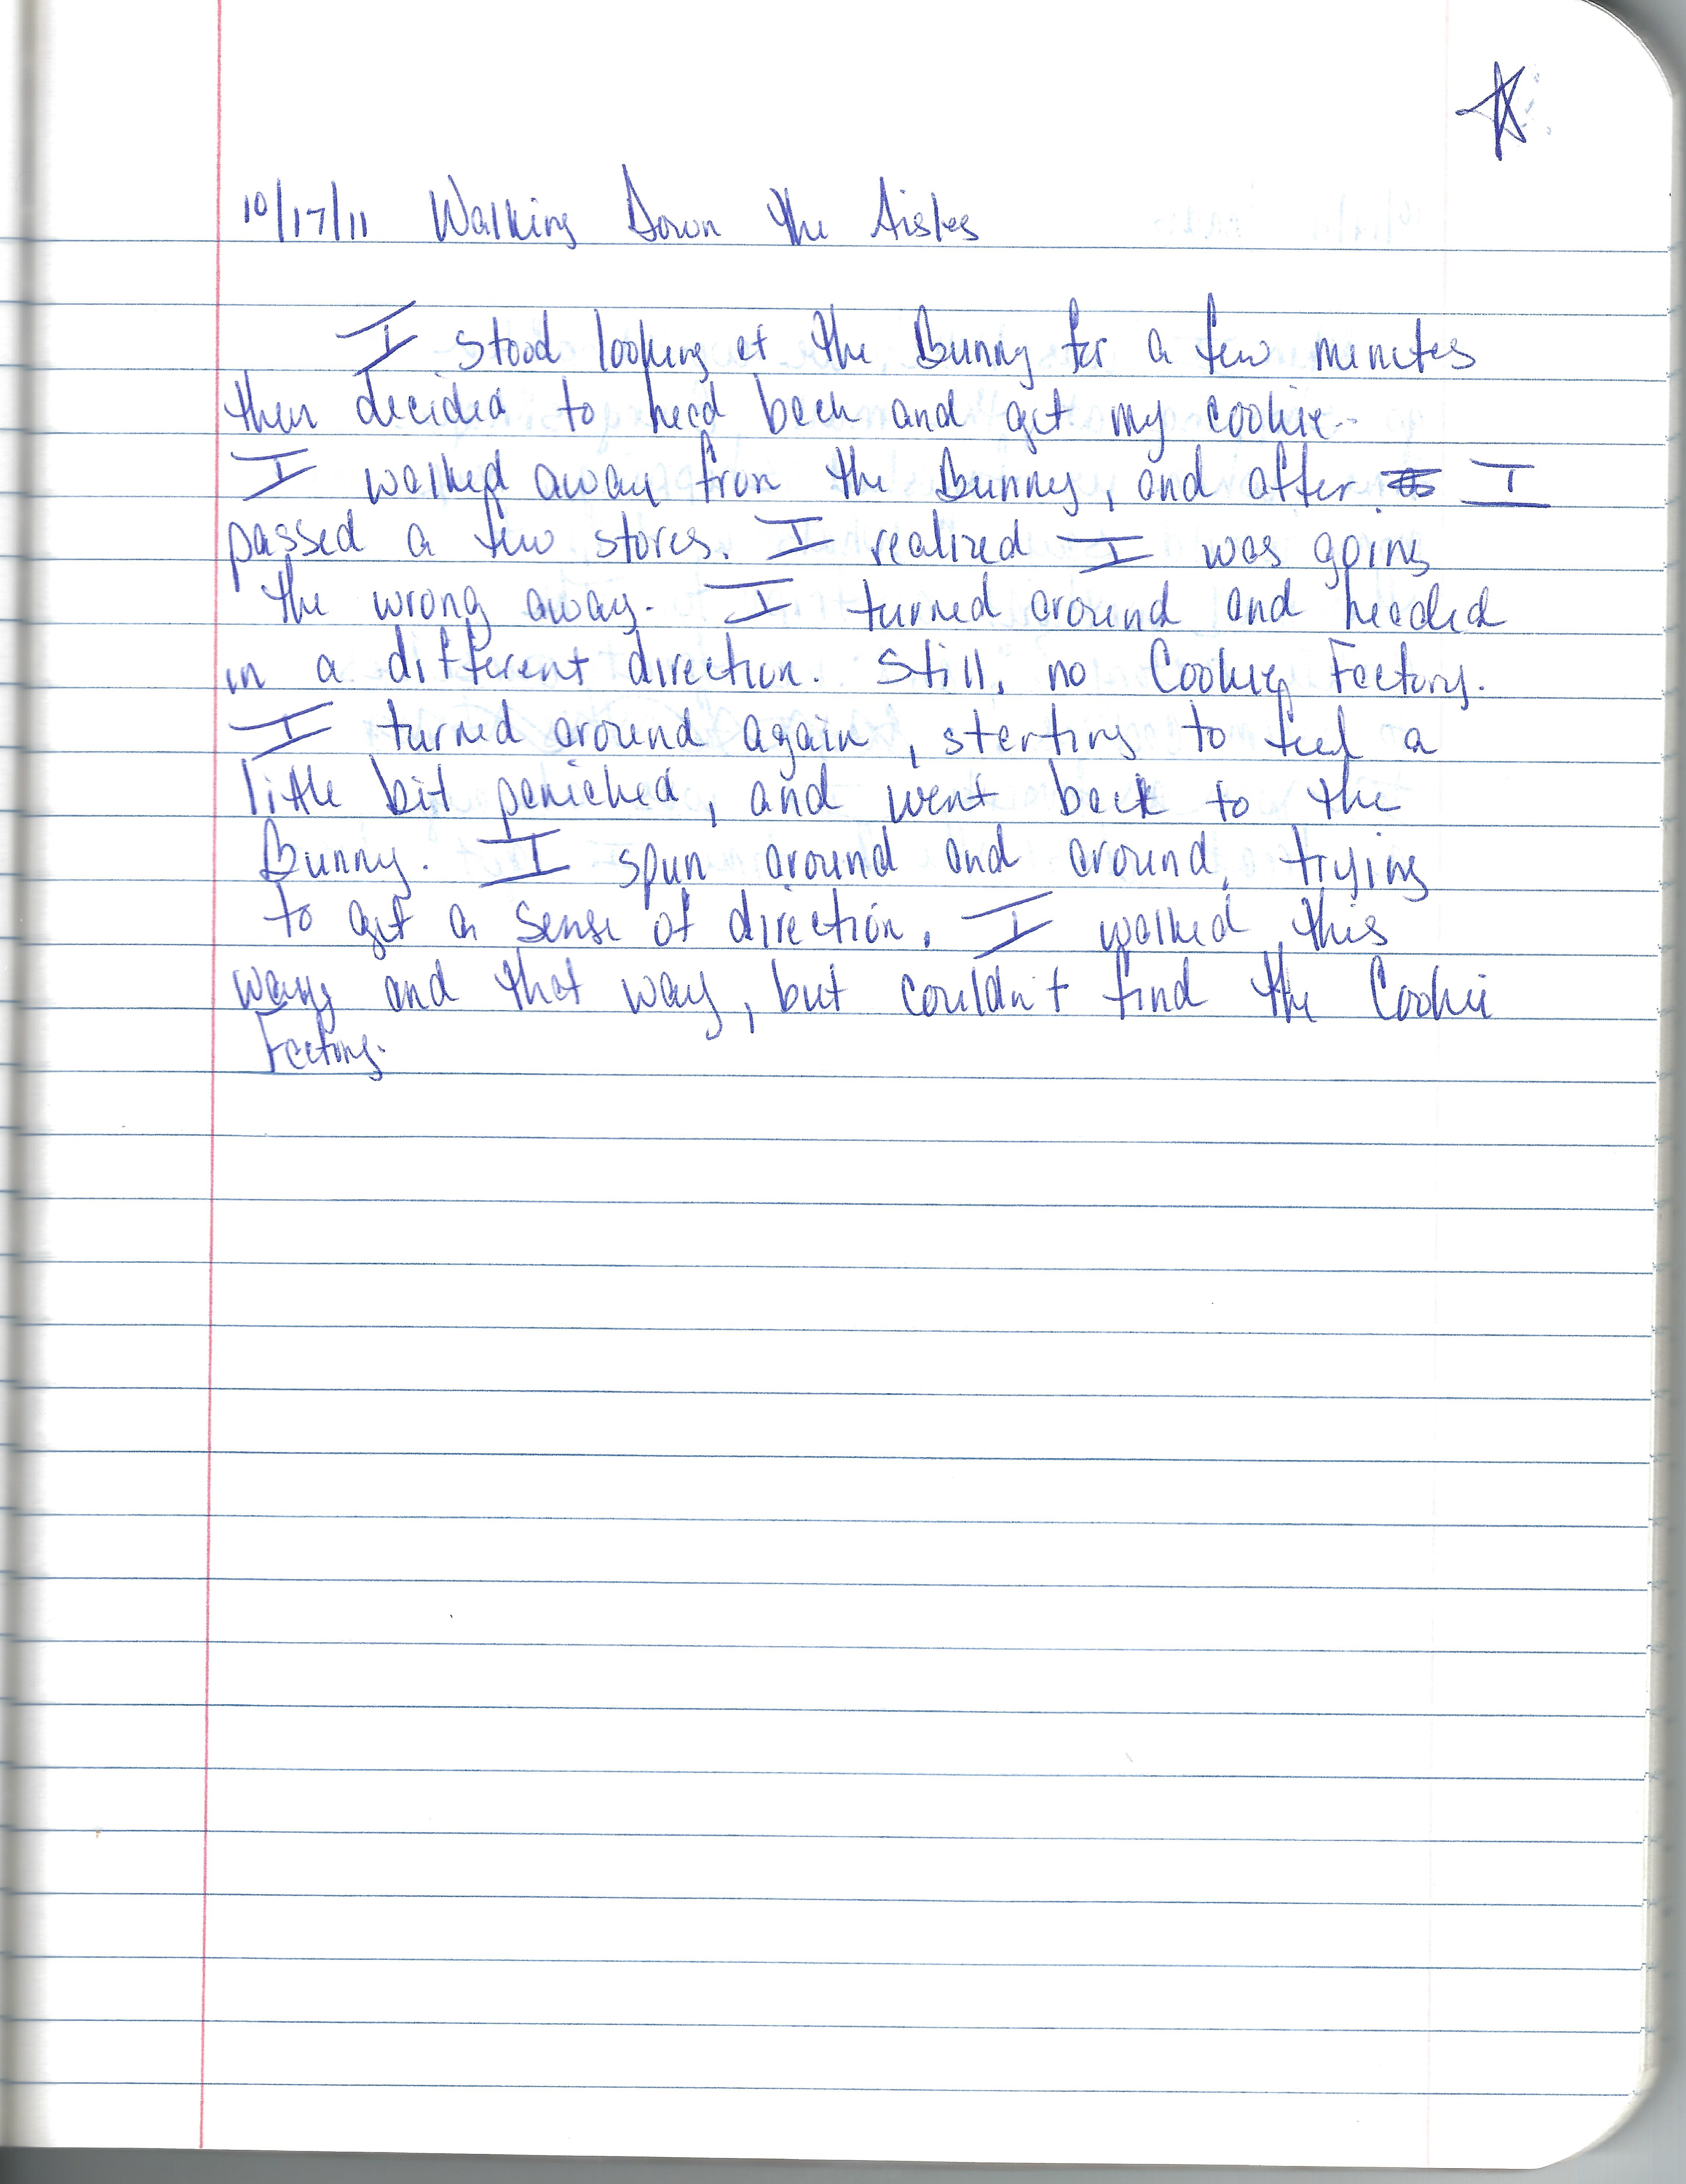 10/17/11 Walking Down the Aisles
I stood looking at the Bunny for a few minutes
then decided to head back and get my cookie.
I walked away from the Bunny, and after I
passed a few stores. I realized I was going
the wrong away. I turned around and headed
in a different direction. Still, no Cookie Factory.
I turned around again, starting to feel a
little bit panicked, and went back to the
Bunny. I spun around and around, trying
to get a sense of direction. I walked this
way and that way, but couldn't find the Cookie
Factory.